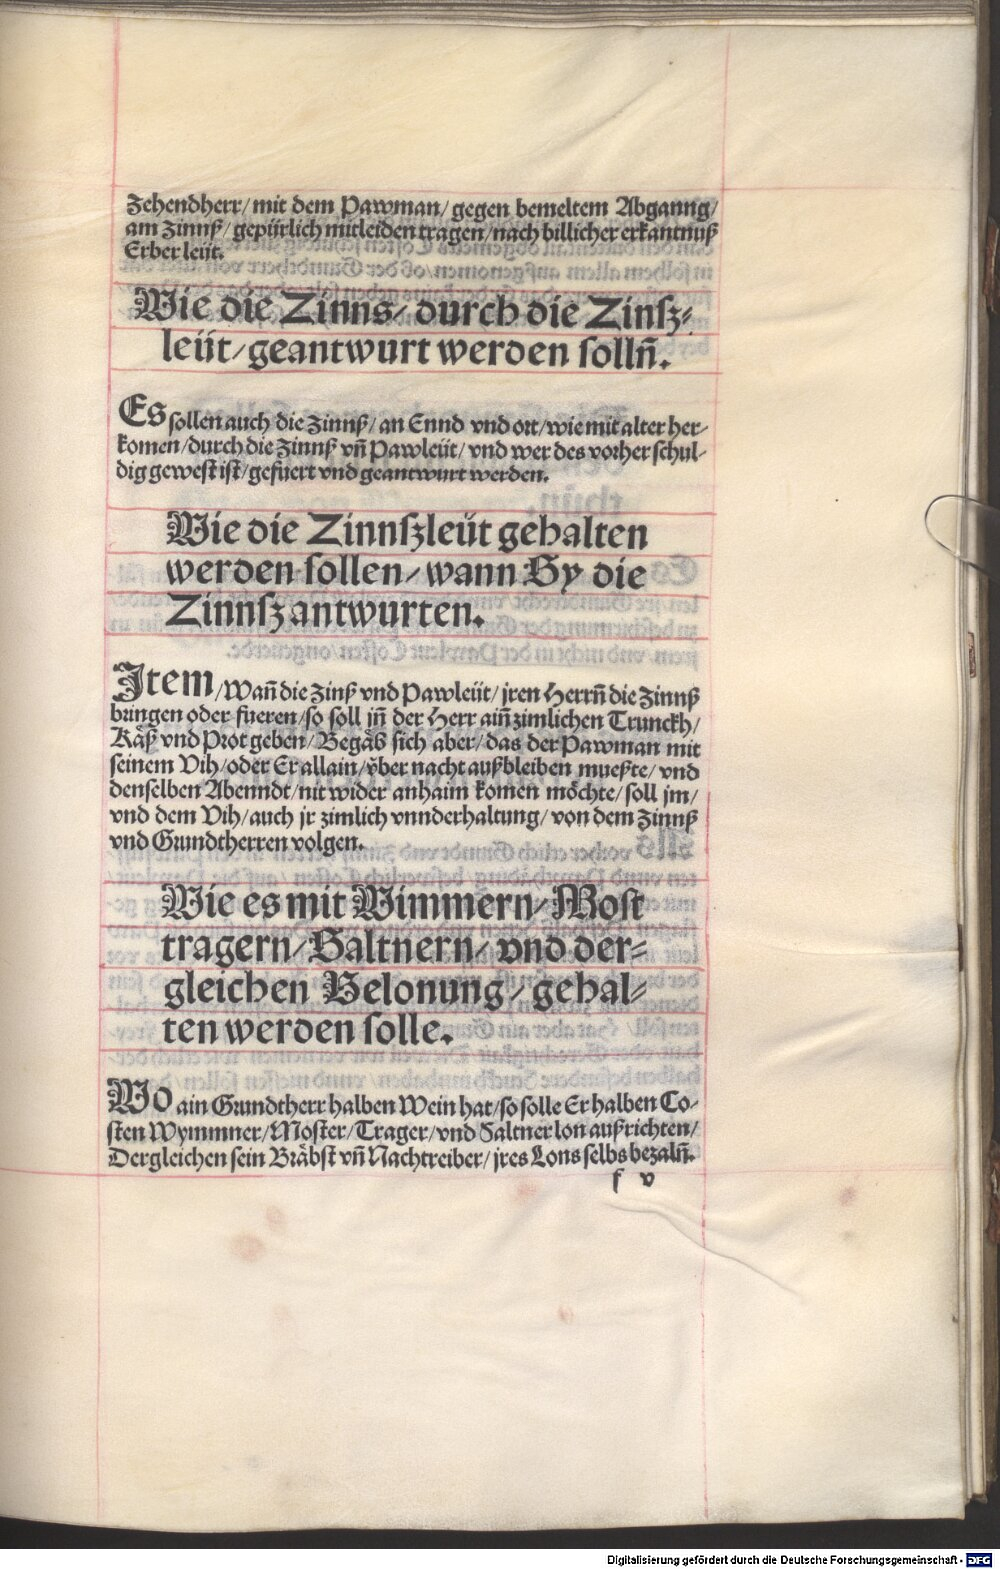 Zehendherr/ mit dem Pawman/ gegen bemeltem Abganng/
am Zinnß/ gepürlich mitleiden tragen/ nach billicher erkantnuß
Erber leüt.
Wie die Zinns/ durch die Zinſz⸗
leüt/ geantwurt werden ſolln̄.
Es ſollen auch die Zinnß/ an Ennd vnd ort/ wie mit alter her⸗
komen/ durch die Zinnß vn̄ Pawleüt/ vnd wer des vorher ſchul⸗
dig geweſt iſt/ gefuert vnd geantwurt werden.
Wie die Zinnſzleüt gehalten
werden ſollen/ wann Sy die
Zinnſz antwurten.
Item/ Wan̄ die Zinß vnd Pawleüt/ jren Herrn̄ die Zinnß
bringen oder fueren/ ſo ſoll jn̄ der Herr ain̄ zimlichen Trunckh/
Käß vnd Prot geben/ Begäb ſich aber/ das der Pawman mit
ſeinem Vih/ oder Er allain/ vber nacht außbleiben mueßte/ vnd
denſelben Abenndt/ nit wider anhaim komen möchte/ ſoll jm/
vnd dem Vih/ auch jr zimlich vnnderhaltung/ von dem Zinnß
vnd Grundtherren volgen.
Wie es mit Wimmern/ Moſt
tragern/ Saltnern/ vnd der⸗
gleichen Belonung/ gehal⸗
ten werden ſolle.
Wo ain Grundtherr halben Wein hat/ ſo ſolle Er halben Co⸗
ſten Wymmner/ Moſter/ Trager/ vnd Saltner lon außrichten/
Dergleichen ſein Bräbſt vn̄ Nachtreiber/ jres Lons ſelbs bezaln̄.
f v
Digitalisierung gefördert durch die Deutsche Forschungsgemeinschaft - DFG